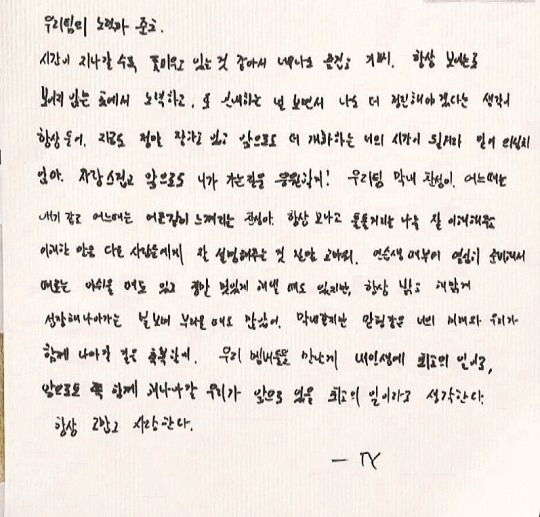 우리팀의 노력과 준호.
시간이 지나갈 수록 꽃피우고 있는 것 같아서 내가 다 뿌듯하고 기뻐. 항상 보이는곳
보이지 않는 곳에서 노력하고, 또 인내하는 널 보면서 나도 더 정진해야겠다는 생각이
항상 들어. 지금도 정말 잘하고 있고 앞으로도 더 개화하는 너의 시간이 될거라 믿어 의심치
않아. 자랑스럽고 앞으로 니가 가는길을 응원할게! 우리팀 막내 찬성이. 어느때는
애기 같고 어느때는 어른같이 느껴지는 찬성아. 항상 모나고 툴툴거리는 나를 잘 이해해주고
이해한 만큼 다른 사람들에게 잘 설명해주는 것 정말 고마워. 연습생 때부터 열심히 준비해서
때로는 아쉬울 때도 있고 정말 멋있게 해낼 때도 있지만, 항상 밝고 해맑게
성장해나아가는 널 보며 부러울 때도 많았어. 막내같지만 맏형같은 너의 미래와 우리가
함께 나아갈 길은 축복할게. 우리 멤버들을 만난게 내 인생에 최고의 일이고,
앞으로도 쭉 함께 지나나갈 우리가 앞으로 있을 최고의 일이라고 생각한다.
항상 고맙고 사랑한다.
— TY